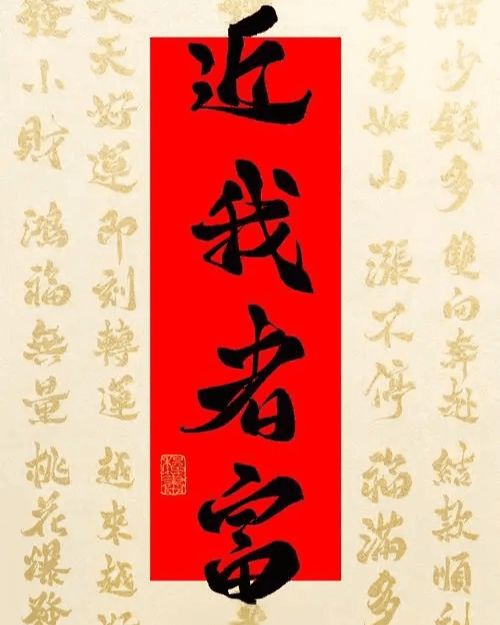 活少錢多 雙向奔赴 結款順利
財富如山 漲不停 福滿多
近我者富
天天好運 即刻轉運 越來越好
發小財 鴻福無量 桃花爆發